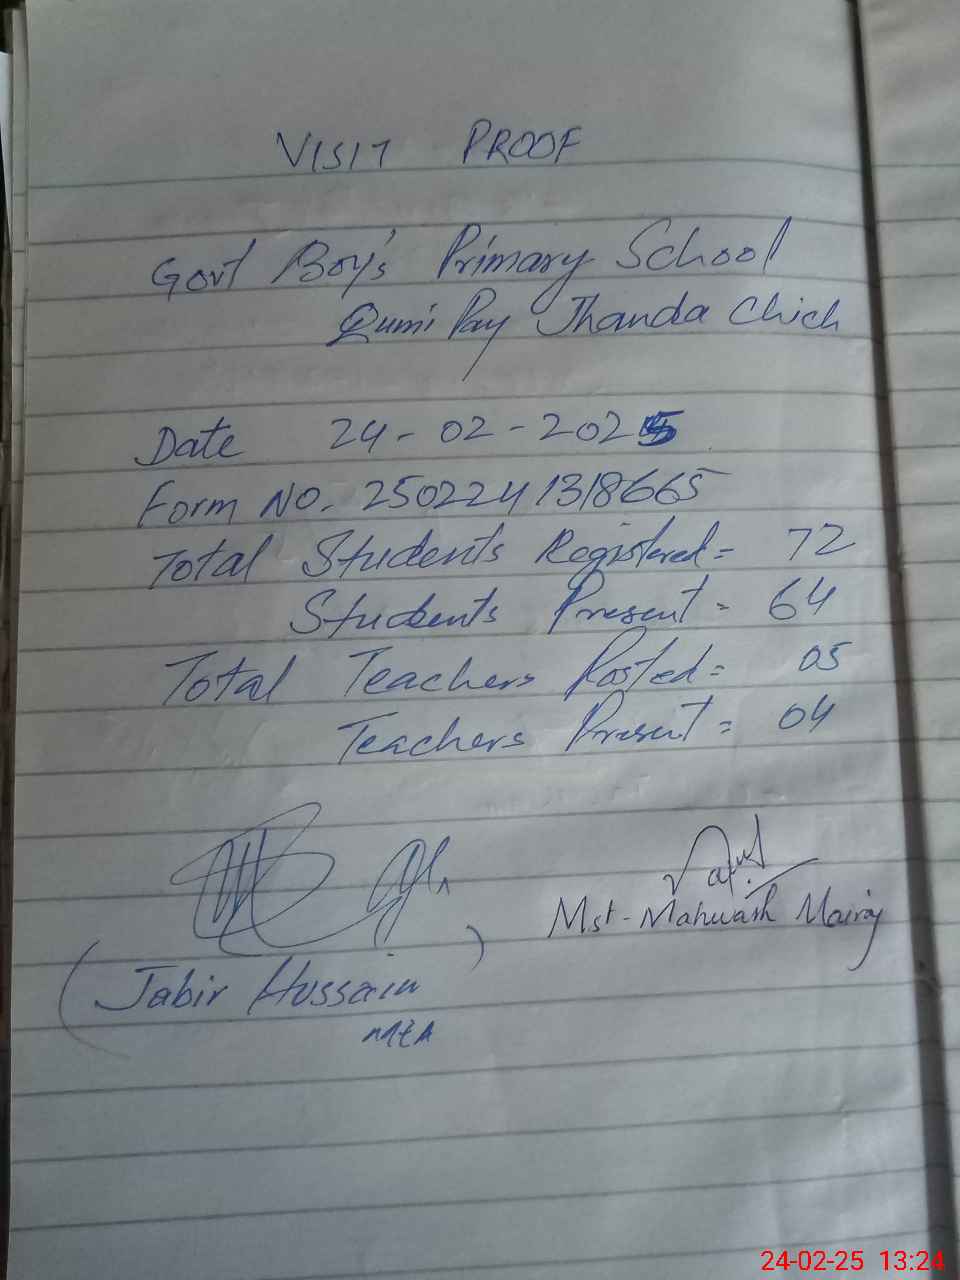 VISIT PROOF
Govt Boy's Primary School
Qumi Pay Jhanda Chich
Date 24-02-2025
Form No. 2502241318665
Total Students Registered = 72
Students Present = 64
Total Teachers Posted = 05
Teachers Present = 04
Mst-Mahwash
(Jabir Hussain)
M&A
24-02-25 13:24